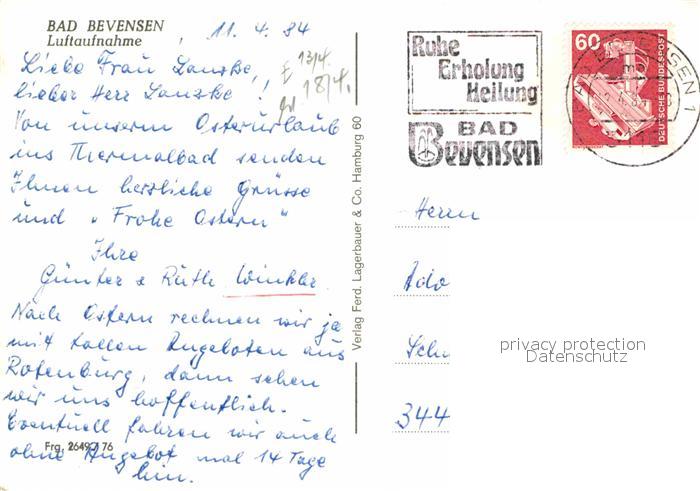 BAD BEVENSEN
Luftaufnahme
11. 4. 84
Liebe Frau Lanzke,
lieber Herr Lanzke!
13/4.
18/4.
Von unserm Osterurlaub
ins Thermalbad senden
Ihnen herzliche Grüsse
und "Frohe Ostern"
Ihre
Günter & Ruth Winkler
Nach Ostern rechnen wir ja
mit tollen Angeboten aus
Rotenburg, dann sehen
wir uns hoffentlich.
Eventuell fahren wir auch
ohne Angebot mal 14 Tage
hin.
Frg. 2649 / 76
Verlag Ferd. Lagerbauer & Co. Hamburg 60
Ruhe
Erholung
Heilung
BAD
Bevensen
60
DEUTSCHE BUNDESPOST
Herrn
Ado
Sch
344
privacy protection
Datenschutz